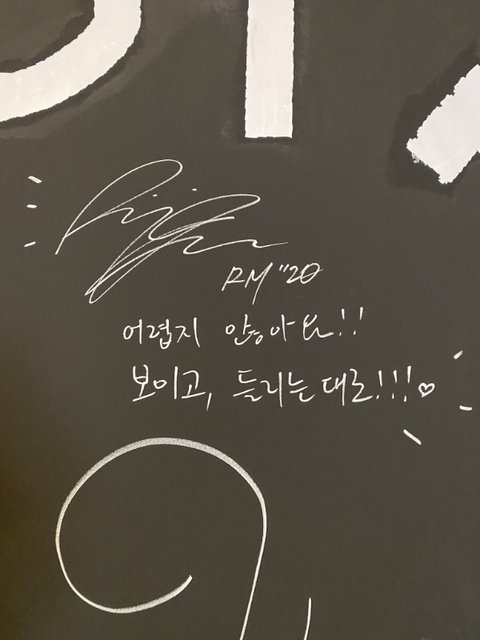 RM "20
어렵지 않아요!!
보이고, 들리는 대로!!!♡